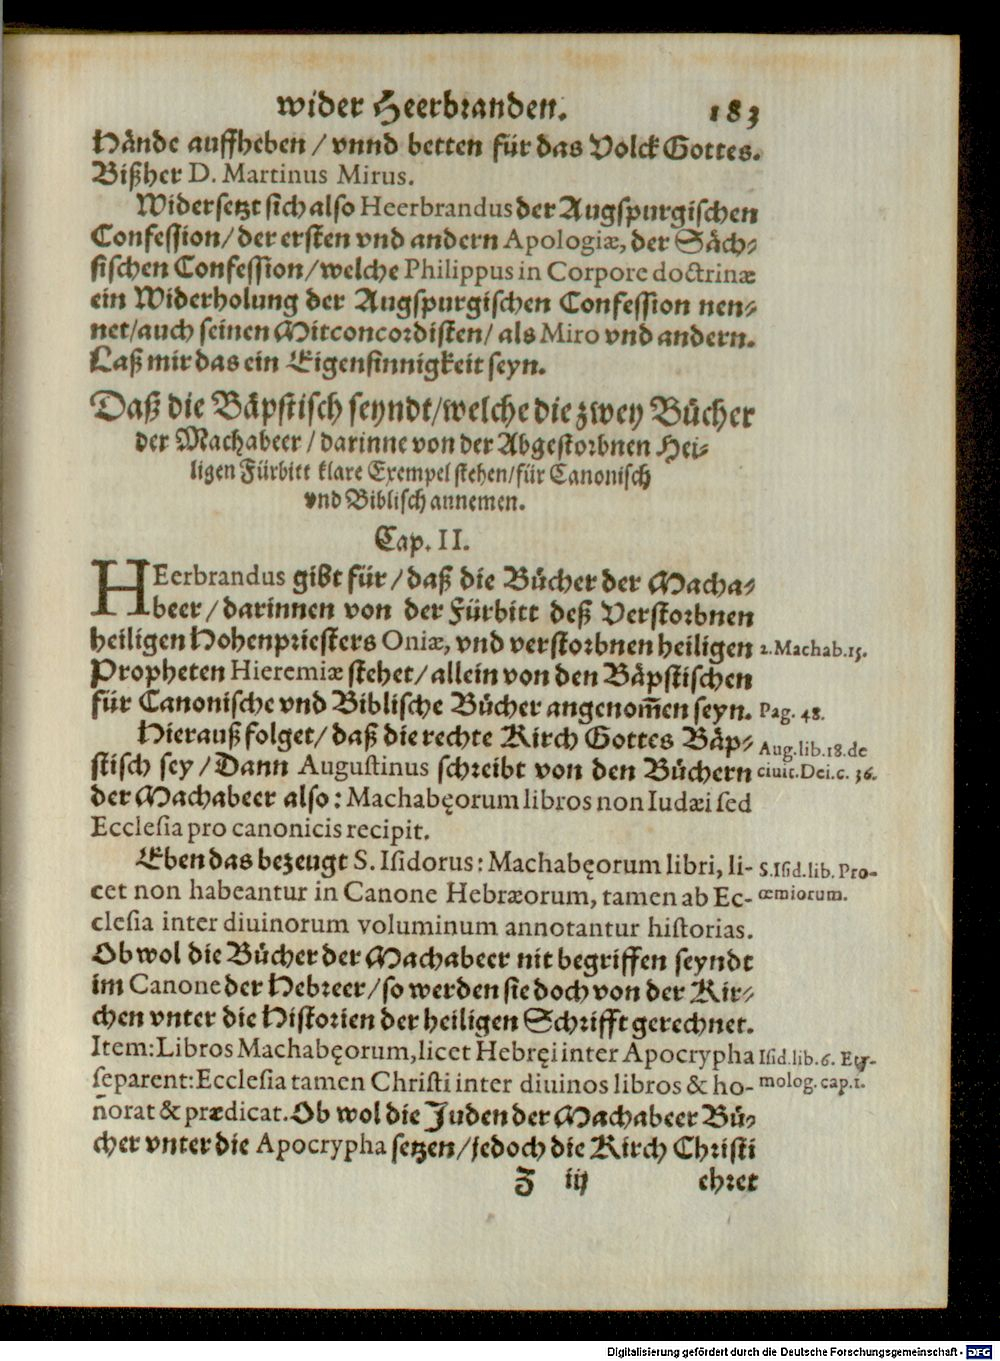 wider Heerbranden. 183
Hände auffheben / vnnd betten für das Volck Gottes.
Bißher D. Martinus Mirus.
Widersetzt sich also Heerbrandus der Augspurgischen
Confession/ der ersten vnd andern Apologiæ, der Säch-
sischen Confession/welche Philippus in Corpore doctrinæ
ein Widerholung der Augspurgischen Confession nen-
net/auch seinen Mitconcordisten/ als Miro vnd andern.
Laß mir das ein Eigensinnigkeit seyn.
Daß die Bäpstisch seyndt/welche die zwey Bücher
der Machabeer / darinne von der Abgestorbnen Hei-
ligen Fürbitt klare Exempel stehen/für Canonisch
vnd Biblisch annemen.
Cap. II.
HEerbrandus gibt für / daß die Bücher der Macha-
beer / darinnen von der Fürbitt deß Verstorbnen
heiligen Hohenpriesters Oniæ, vnd verstorbnen heiligen 2. Machab.15.
Propheten Hieremiæ stehet / allein von den Bäpstischen
für Canonische vnd Biblische Bücher angenom̃en seyn. Pag. 48.
Hierauß folget/ daß die rechte Kirch Gottes Bäp-
stisch sey / Dann Augustinus schreibt von den Büchern
Aug.lib.18.de
ciuit.Dei.c. 36.
der Machabeer also: Machabęorum libros non Iudæi sed
Ecclesia pro canonicis recipit.
Eben das bezeugt S. Isidorus: Machabęorum libri, li- S.Isid.lib. Pro-
cet non habeantur in Canone Hebræorum, tamen ab Ec- œmiorum.
clesia inter diuinorum voluminum annotantur historias.
Ob wol die Bücher der Machabeer nit begriffen seyndt
im Canone der Hebreer/so werden sie doch von der Kir-
chen vnter die Historien der heiligen Schrifft gerechnet.
Item: Libros Machabęorum, licet Hebręi inter Apocrypha Isid.lib.6. Ety-
separent: Ecclesia tamen Christi inter diuinos libros & ho- molog. cap.1.
norat & prædicat. Ob wol die Juden der Machabeer Bü-
cher vnter die Apocrypha setzen/jedoch die Kirch Christi
Z iij ehret
Digitalisierung gefördert durch die Deutsche Forschungsgemeinschaft - DFG